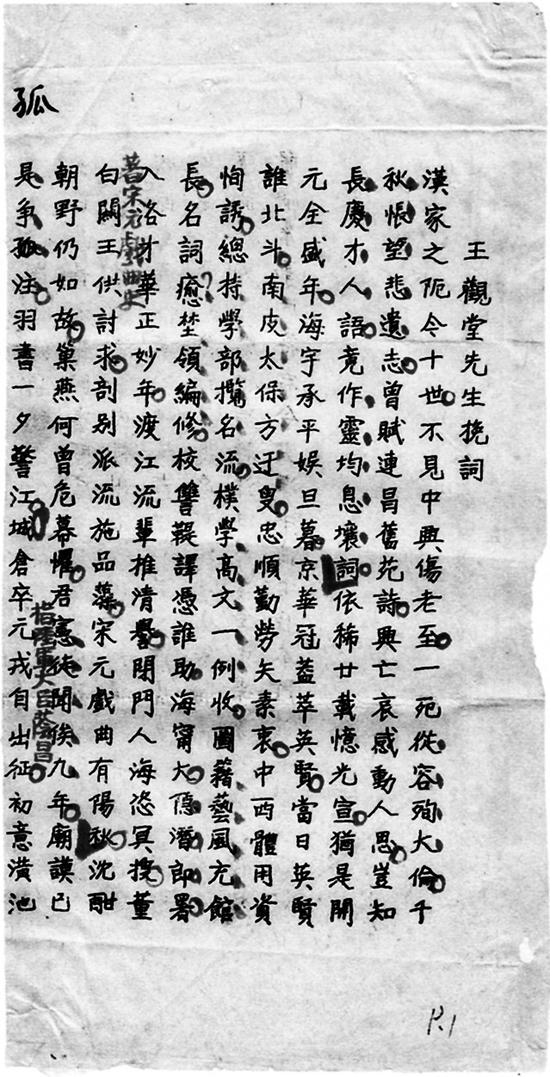 王觀堂先生挽詞
漢家之阨今十世不見中興傷老至一死從容殉大倫千
秋悵望悲遺志曾賦連昌舊苑詩興亡哀感動人思豈知
長慶才人語竟作靈均息壤詞依稀廿載憶光宣猶是開
元全盛年海宇承平娛旦暮京華冠蓋萃英賢當日英賢
誰北斗南皮太保方迂叟忠順勤勞矢素衷中西體用資
恂誘總持學部攬名流樸學高文一例收圖籍藝風充館
長名詞瘉埜領編修校讐鞮譯憑誰助海甯大隱潛郎署
入洛才華正妙年渡江流輩推清譽閉門人海恣冥搜董
著宋元戲曲史
白關王供討求剖别派流施品藻宋元戲曲有陽秋沈酣
朝野仍如故巢燕何曾危幕懼君憲徒聞俟九年廟謨已
指陸軍大臣蔭昌
是爭孤注羽書一夕警江城倉卒元戎自出征初意潢池
孤
P.1